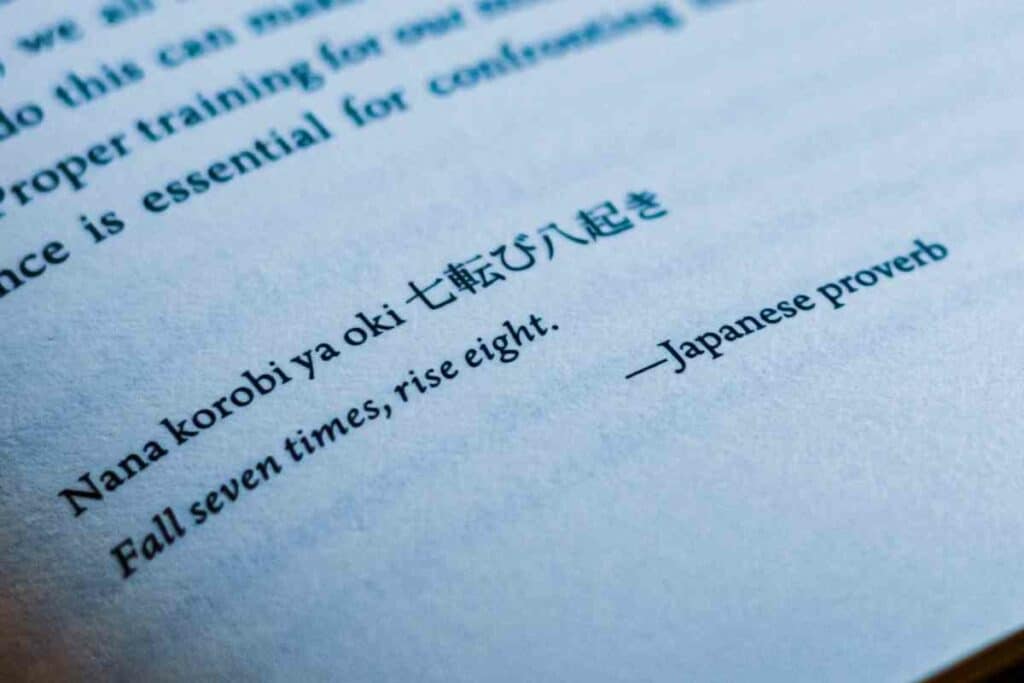 we all
do this can
Proper training for our
is essential for confronting
Nana korobi ya oki 七転び八起き
Fall seven times, rise eight.
—Japanese proverb